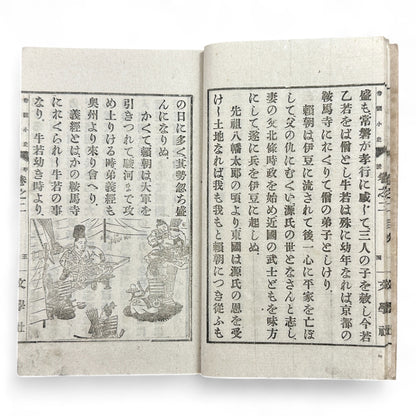 盛も常磐が孝行に感じて三人の子を赦し今若
乙若をば僧とし牛若は殊に幼年なれば京都の
鞍馬寺にれくりて僧の弟子としけり
頼朝は伊豆に流されて後一心に平家を亡ぼ
して父の仇にむくい源氏の世となさんと志し
妻の父北條時政を始め近國の武士どもを味方
にして遂に兵を伊豆に起しぬ
先祖八幡太郎の頃より東國は源氏の恩を受
けし土地なれば我も我もと頼朝につき從ふも
の日に多く其勢忽ち盛
んになりぬ
かくて頼朝は大軍を
引きつれて駿河まで攻
め上りける時弟義經も
奥州より來り會へり
義經とはかの鞍馬寺
にれくられし牛若の事
なり、牛若幼き時より
卷之二
五
文學社